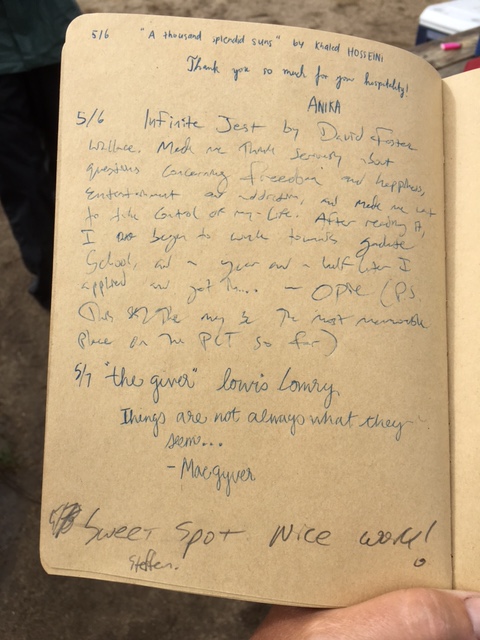 5/6 "A thousand splendid suns" by Khaled HOSSEINI
Thank you so much for your hospitality!
ANIKA
5/6 Infinite Jest by David Foster
Wallace. Made me think seriously about
questions concerning freedom and happiness,
entertainment and addiction, and made me want
to take control of my life. After reading it,
I began to work towards graduate
School, and a year and a half later I
applied and got in... - OPIE (PS
This may be the most memorable
place on the PCT so far)
5/7 "the giver" lowis Lowry
Things are not always what they
seem...
- Macgyver
Sweet Spot. Nice work!
Steffen.